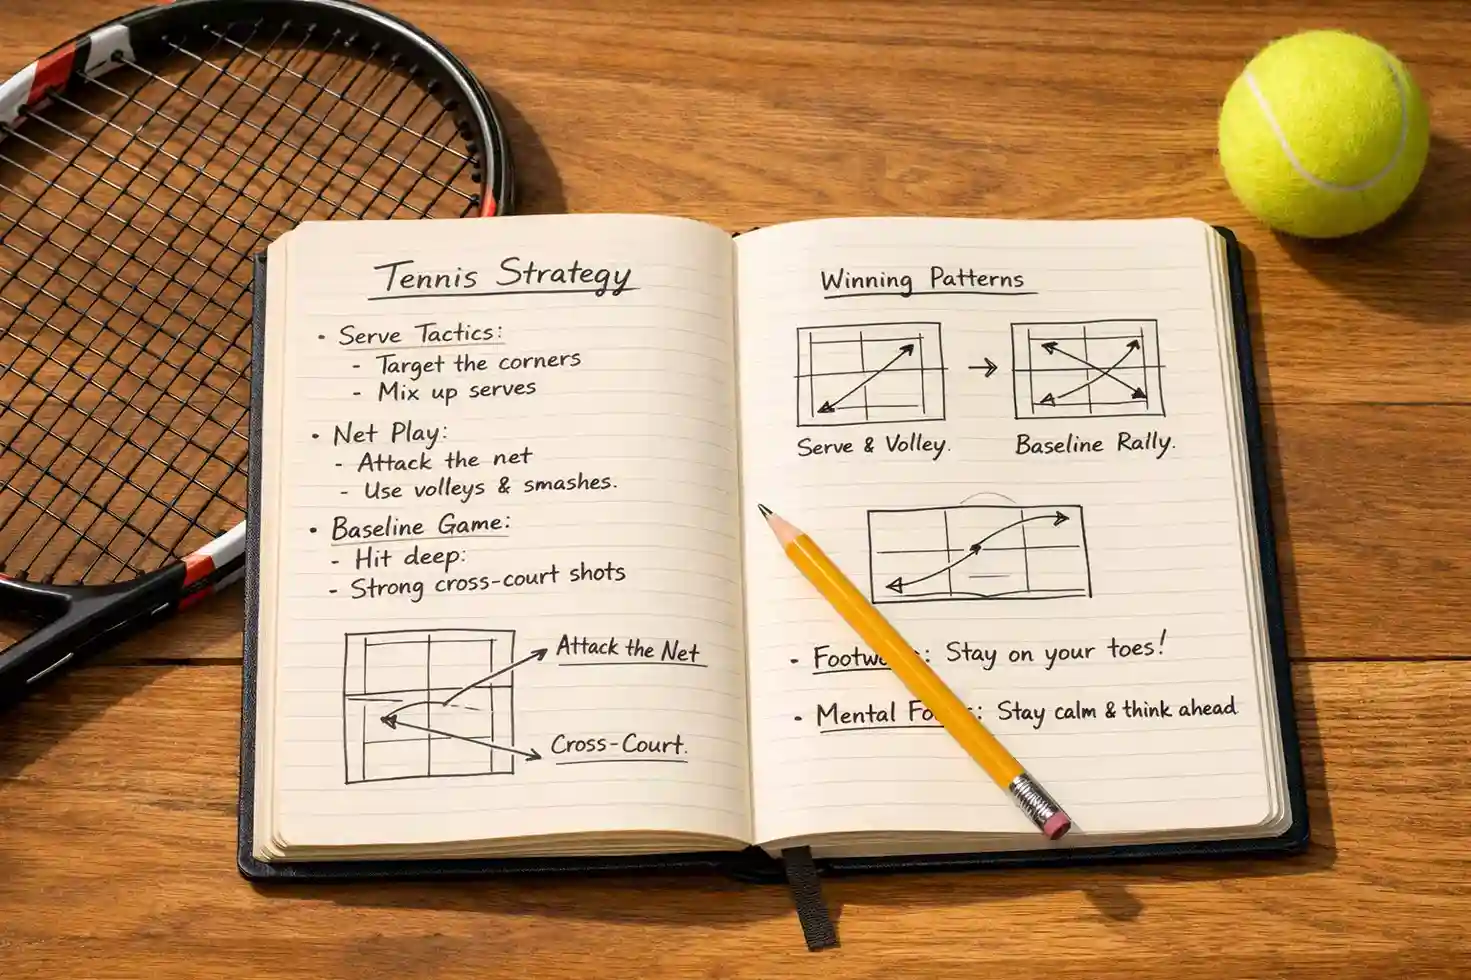 Tennis Strategy
• Serve Tactics:
- Target the corners
- Mix up serves
• Net Play:
- Attack the net
- Use volleys & smashes.
• Baseline Game:
- Hit deep:
- Strong cross-court shots
Attack the Net
Cross-Court.
Winning Patterns
Serve & Volley.
Baseline Rally.
• : Stay on your toes!
• Mental : Stay calm & think ahead